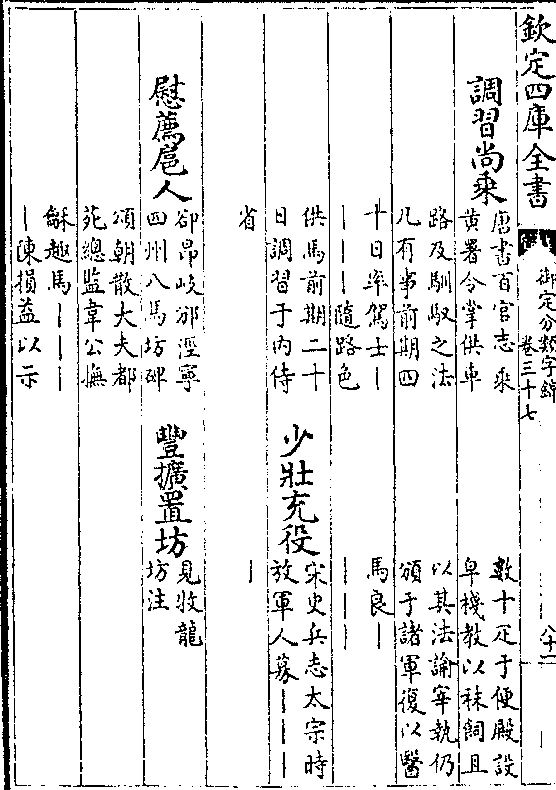 欽定四庫全書
御定分類字錦
卷三十七
八十二
調習尚乘
唐書百官志乘
黄署令掌供車
路及馴馭之法
凡有事前期四
十日率駕士｜
｜｜｜隨路色
供馬前期二十
日調習于内侍
省
慰薦扈人
郤昂岐邠涇寧
四州八馬坊碑
頌朝散大夫都
苑總監韋公憮
龢趣馬｜｜｜
｜陳損益以示
數十疋于便殿設
皁棧教以秣飼且
以其法諭宰執仍
頒于諸軍復以醫
馬良｜
｜｜｜
少壯充役
宋史兵志太宗時
放軍人募｜｜｜
｜
豐擴置坊
見牧龍
坊注